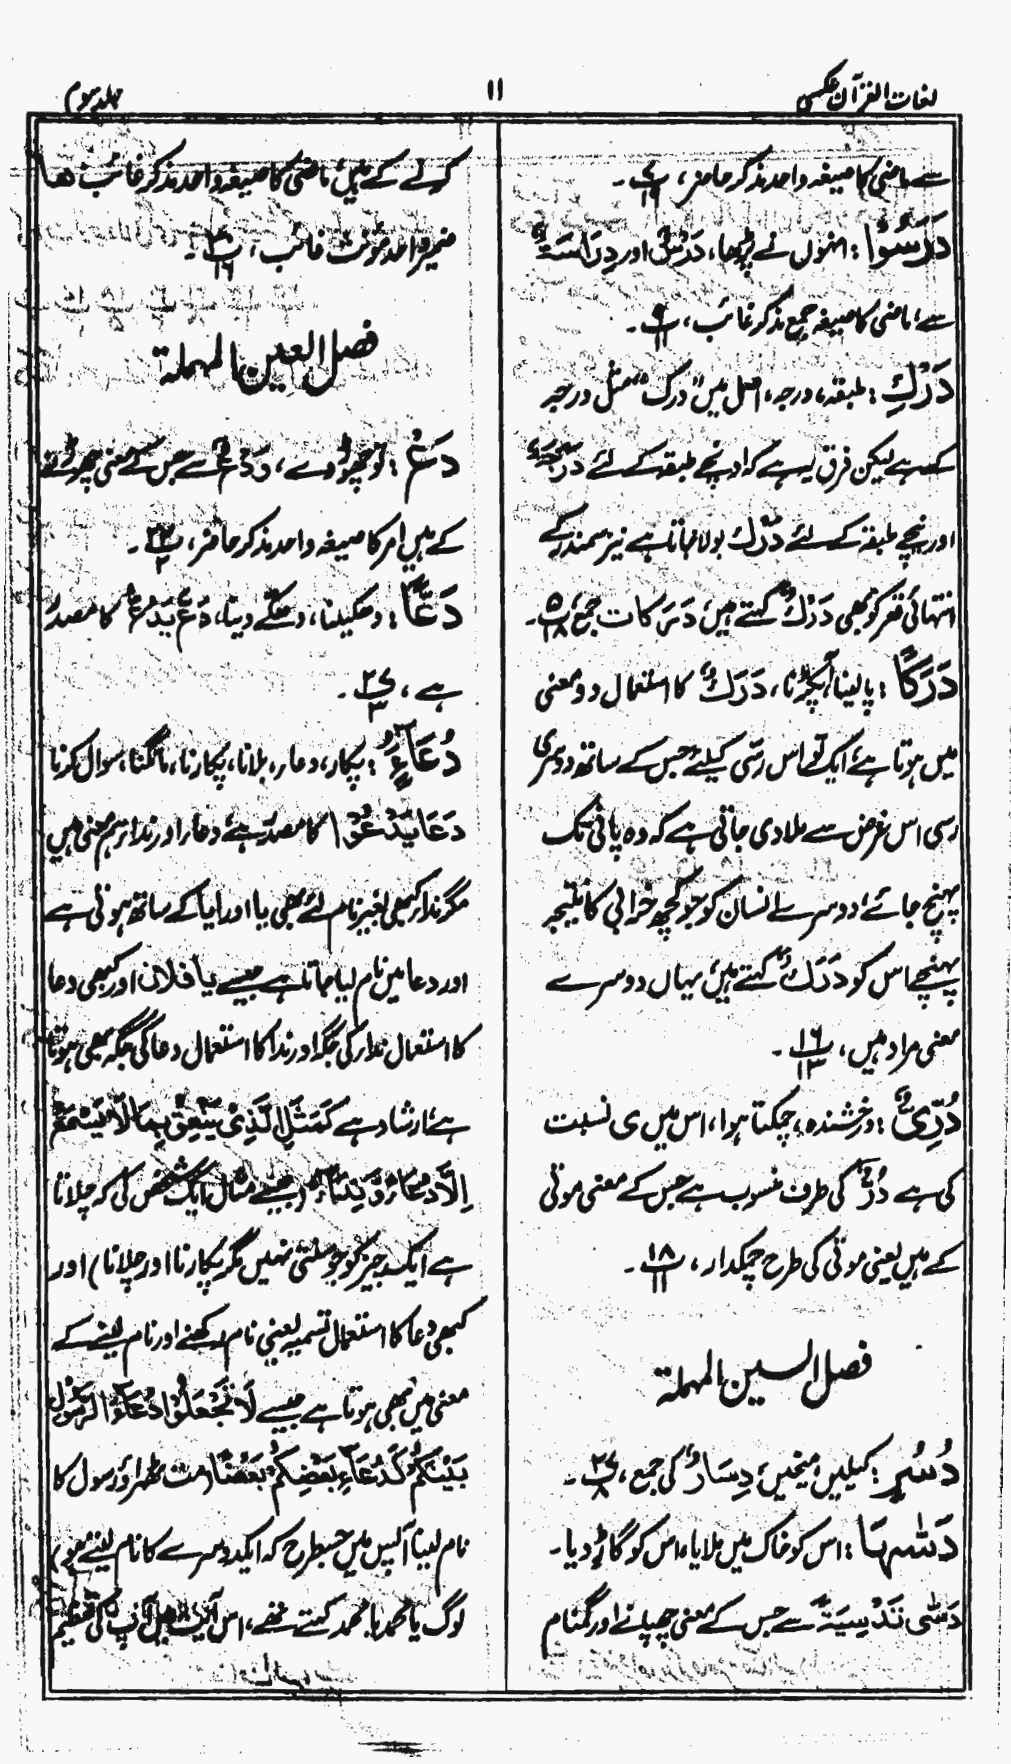 لغات القرآن عکسی
۱۱
جلد سوم
سے ماضی کا صیغہ واحد مذکر حاضر،
دَرَسُوْا: انہوں نے پڑھا، دَرْسٌ اور دِرَاسَةٌ
سے، ماضی کا صیغہ جمع مذکر غائب، پ ۹/۱۱۔
دَرْكِ: طبقہ، درجہ، اصل میں "درک" مثل درجہ
کے ہے لیکن فرق یہ ہے کہ اونچے طبقہ کے لئے دَرَجَةٌ
اور نیچے طبقہ کے لئے دَرْكٌ بولا جاتا ہے نیز سمندر کے
انتہائی قعر کو بھی دَرْكٌ کہتے ہیں، دَرَكَات جمع، پ ۵/۱۸۔
دَرَكًا: پا لینا، آپکڑنا، دَرَكٌ کا استعمال دو معنی
میں ہوتا ہے، ایک تو اس رسّی کیلئے جس کے ساتھ دوسری
رسی اس غرض سے ملا دی جاتی ہے کہ وہ پانی تک
پہنچ جائے، دوسرے انسان کو جو کچھ خرابی کا نتیجہ
پہنچے اس کو دَرَكٌ کہتے ہیں، یہاں دوسرے
معنی مراد ہیں، پ ۱۶/۱۳۔
دُرِّيٌّ: درخشندہ، چمکتا ہوا، اس میں ی نسبت
کی ہے دُرٌّ کی طرف منسوب ہے جس کے معنی موتی
کے ہیں یعنی موتی کی طرح چمکدار، پ ۱۸/۱۱۔
فصل السین المہملۃ
دُسُرٍ: کیلیں، میخیں، دِسَارٌ کی جمع، پ ۲۷/۸۔
دَسّٰہَا: اس کو خاک میں ملایا، اس کو گاڑ دیا۔
دَسّٰى تَدْسِيَةً سے جس کے معنی چھپانے اور گمنام
کرنے کے ہیں، ماضی کا صیغہ واحد مذکر غائب ھا
ضمیر واحد مؤنث غائب، پ ۳۰/۱۶۔
فصل العین المہملۃ
دَعْ: تو چھوڑ دے، وَدْعٌ سے جس کے معنی چھوڑنے
کے ہیں امر کا صیغہ واحد مذکر حاضر، پ ۲۲/۲۔
دَعًّا: دھکیلنا، دھکے دینا، دَعَّ يَدُعُّ کا مصدر
ہے، پ ۲۷/۳۔
دُعَاءٍ: پکار، دعا، بلانا، پکارنا، مانگنا، سوال کرنا
دَعَا يَدْعُوْا کا مصدر ہے، دعاء اور نداء ہم معنی ہیں
مگر نداء کبھی بغیر نام لئے بھی یا اور ایا کے ساتھ ہوتی ہے
اور دعا میں نام لیا جاتا ہے جیسے یا فلان اور کبھی دعا
کا استعمال نداء کی جگہ اور نداء کا استعمال دعا کی جگہ بھی ہوتا
ہے، ارشاد ہے كَمَثَلِ الَّذِيْ يَنْعِقُ بِمَا لَا يَسْمَعُ
اِلَّا دُعَآءً وَّنِدَآءً (جیسے مثال ایک شخص کی کہ چلاتا
ہے ایک چیز کو جو سنتی نہیں مگر پکارنا اور چلانا) اور
کبھی دعا کا استعمال تسمیہ یعنی نام رکھنے اور نام لینے کے
معنی میں بھی ہوتا ہے جیسے لَا تَجْعَلُوْا دُعَآءَ الرَّسُوْلِ
بَيْنَكُمْ كَدُعَآءِ بَعْضِكُمْ بَعْضًا (مت ٹھہراؤ رسول کا
نام لینا آپس میں جسطرح کہ ایکدوسرے کا نام لیتے ہو)
لوگ یا محمد یا محمد کہتے تھے، اس آیت میں آپ کی تعظیم